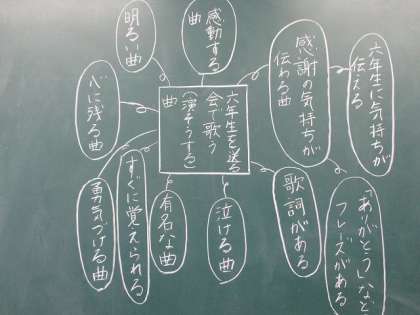 六年生に気持ちが
伝える
感謝の気持ちが
伝わる曲
感動する
曲
明るい曲
心に残る曲
六年生を送る
会で歌う
(演そうする)
曲
「ありがとう」など
フレーズがある
歌詞がある
泣ける曲
有名な曲
すぐに覚えられる
勇気づける曲